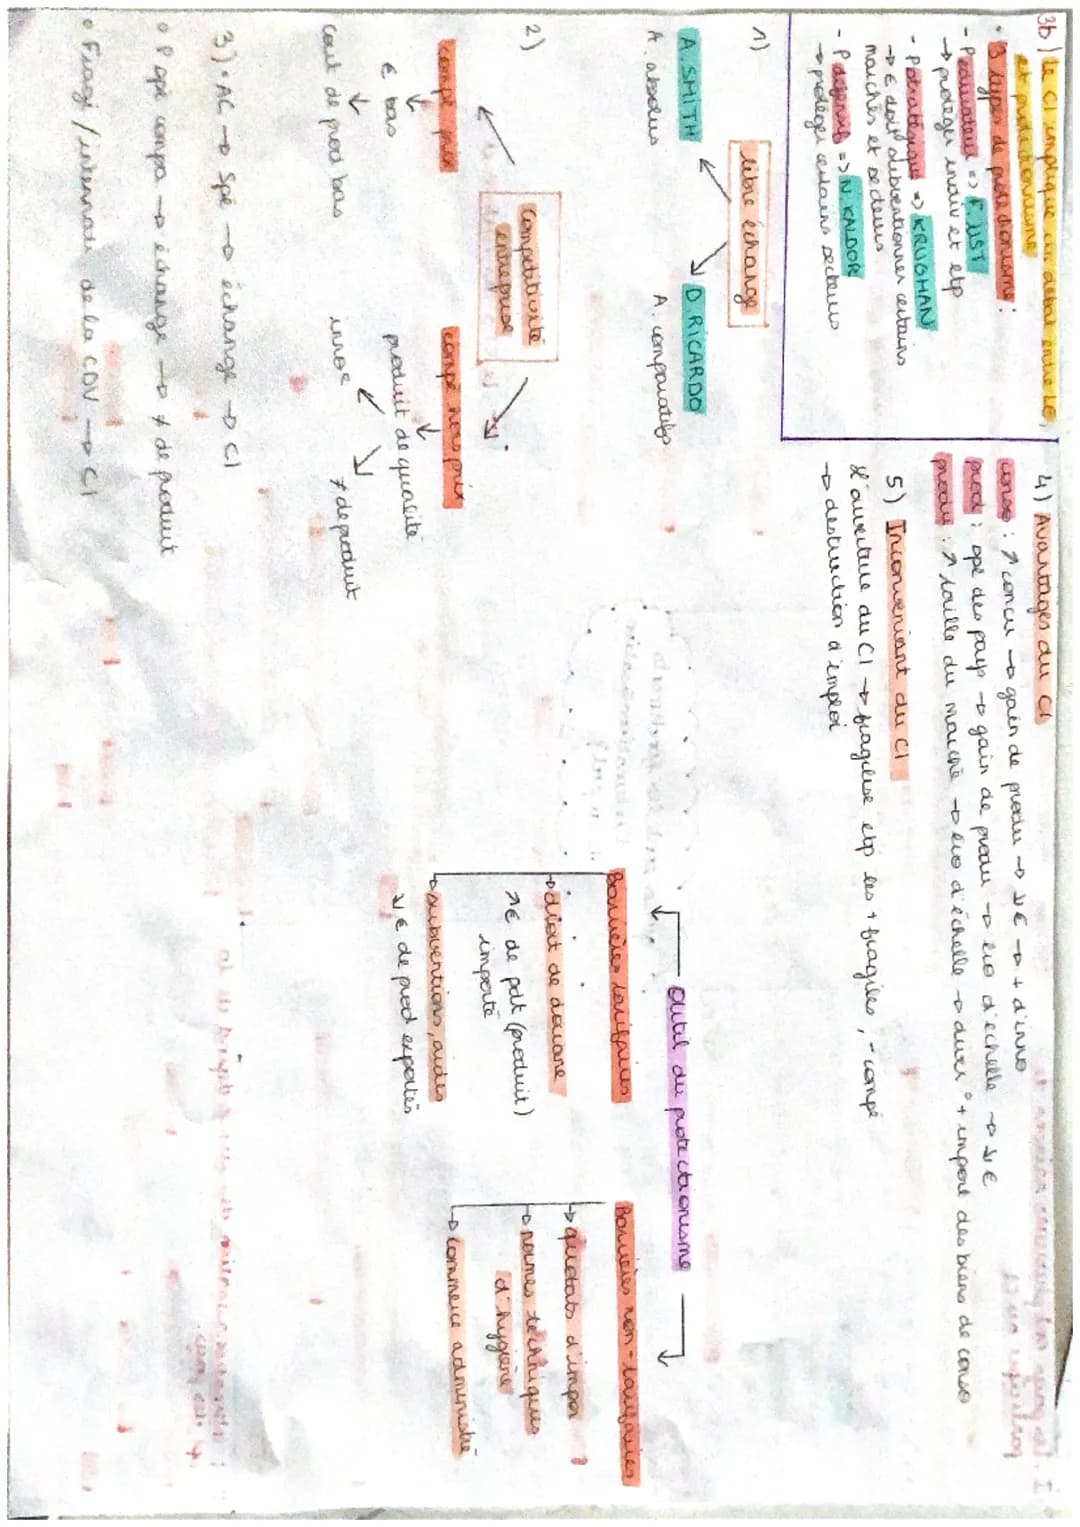 3b) Le CI implique con débat entre LE,
et protectionnisme
• 3 types de protectionisme :
- P éducateur => F. LIST
→ protéger indiv et etp
- P stratégique => KRUGMAN
→ € doit subventionner certains
marchés et secteurs
- P défensif => N. KALDOR
→ protéger certains secteurs
1)
libre échange
A. SMITH
A. absolus
D. RICARDO
A. comparatifs
2)
Compétitivité
entreprise
compé prix
€ bas
cout de prod bas
compé hors prix
produit de qualité
innoe
≠ de produit
3) • AC → Spé → échange → CI
• P opé compa → échange → ≠ de produit
• Fragi / internati de la CDV → CI
4) Avantages du CI
conso : ↗ concu → gain de produ → ↘ € → + d'inno
prod : opé des pays → gain de produ → éco d'échelle → ↘ €
produ : ↗ taille du marché → éco d'échelle → divers° + import des biens de conso
5) Inconvéniant du CI
L'ouverture du CI → fragilise etp les + fragiles, - compé
→ destruction d'emploi
Outil du protectionisme
Barrières tarifaires
→ droit de douane
↗ € de pdt (produit)
importé
→ subventions, aides
↘ € de prod exportés
Barrières non-tarifaires
→ quotats d'impor
→ normes techniques
d'hygiène
→ commerce administré